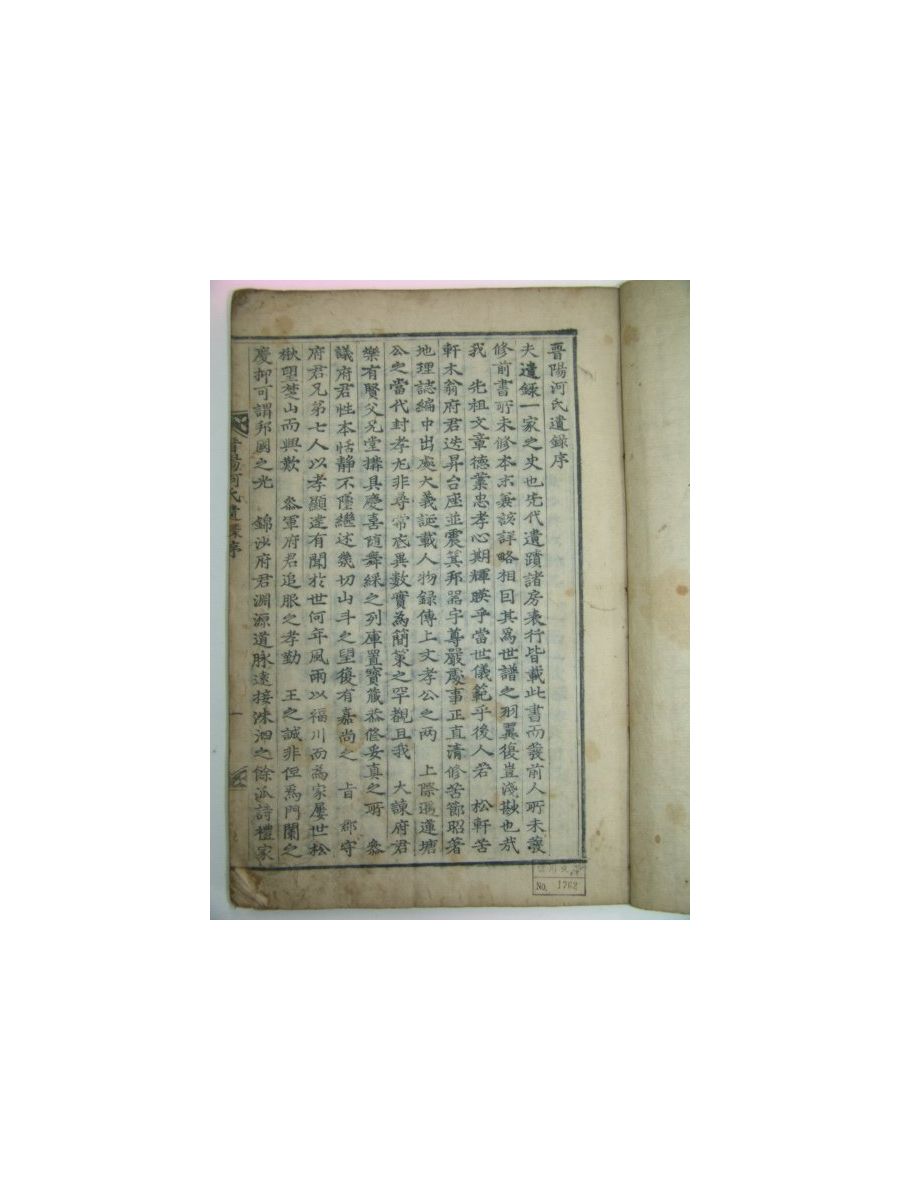 晋陽河氏遺錄序
夫遺錄一家之史也先代遺蹟諸房表行皆載此書而發前人所未發
修前書所未修本末兼該詳略相因其爲世譜之羽翼復豈淺尠也哉
我 先祖文章德業忠孝心期輝暎乎當世儀範乎後人若 松軒苦
軒木翁府君迭昇台座並震箕邦器宇尊嚴處事正直清修苦節昭著
地理誌編中出處大義誕載人物録傳上文孝公之两 上際遇蓮塘
公之當代封孝尤非尋常底異數實為簡策之罕觀且我 大諫府君
樂有賢父兄堂搆具慶喜隨舞綵之列庫置寶藏恭修妥真之所 叅
議府君性本恬静不墜繼述幾切山斗之望復有嘉尚之 旨 郡守
府君兄弟七人以孝顯達有聞於世何年風雨以福川而為家屢世松
楸望楚山而興歎 叅軍府君追服之孝勤 王之誠非但爲門闌之
慶抑可謂邦國之光 錦沙府君淵源道脉遠接洙泗之餘派詩禮家
晋陽河氏遺錄序
一
No. 1762